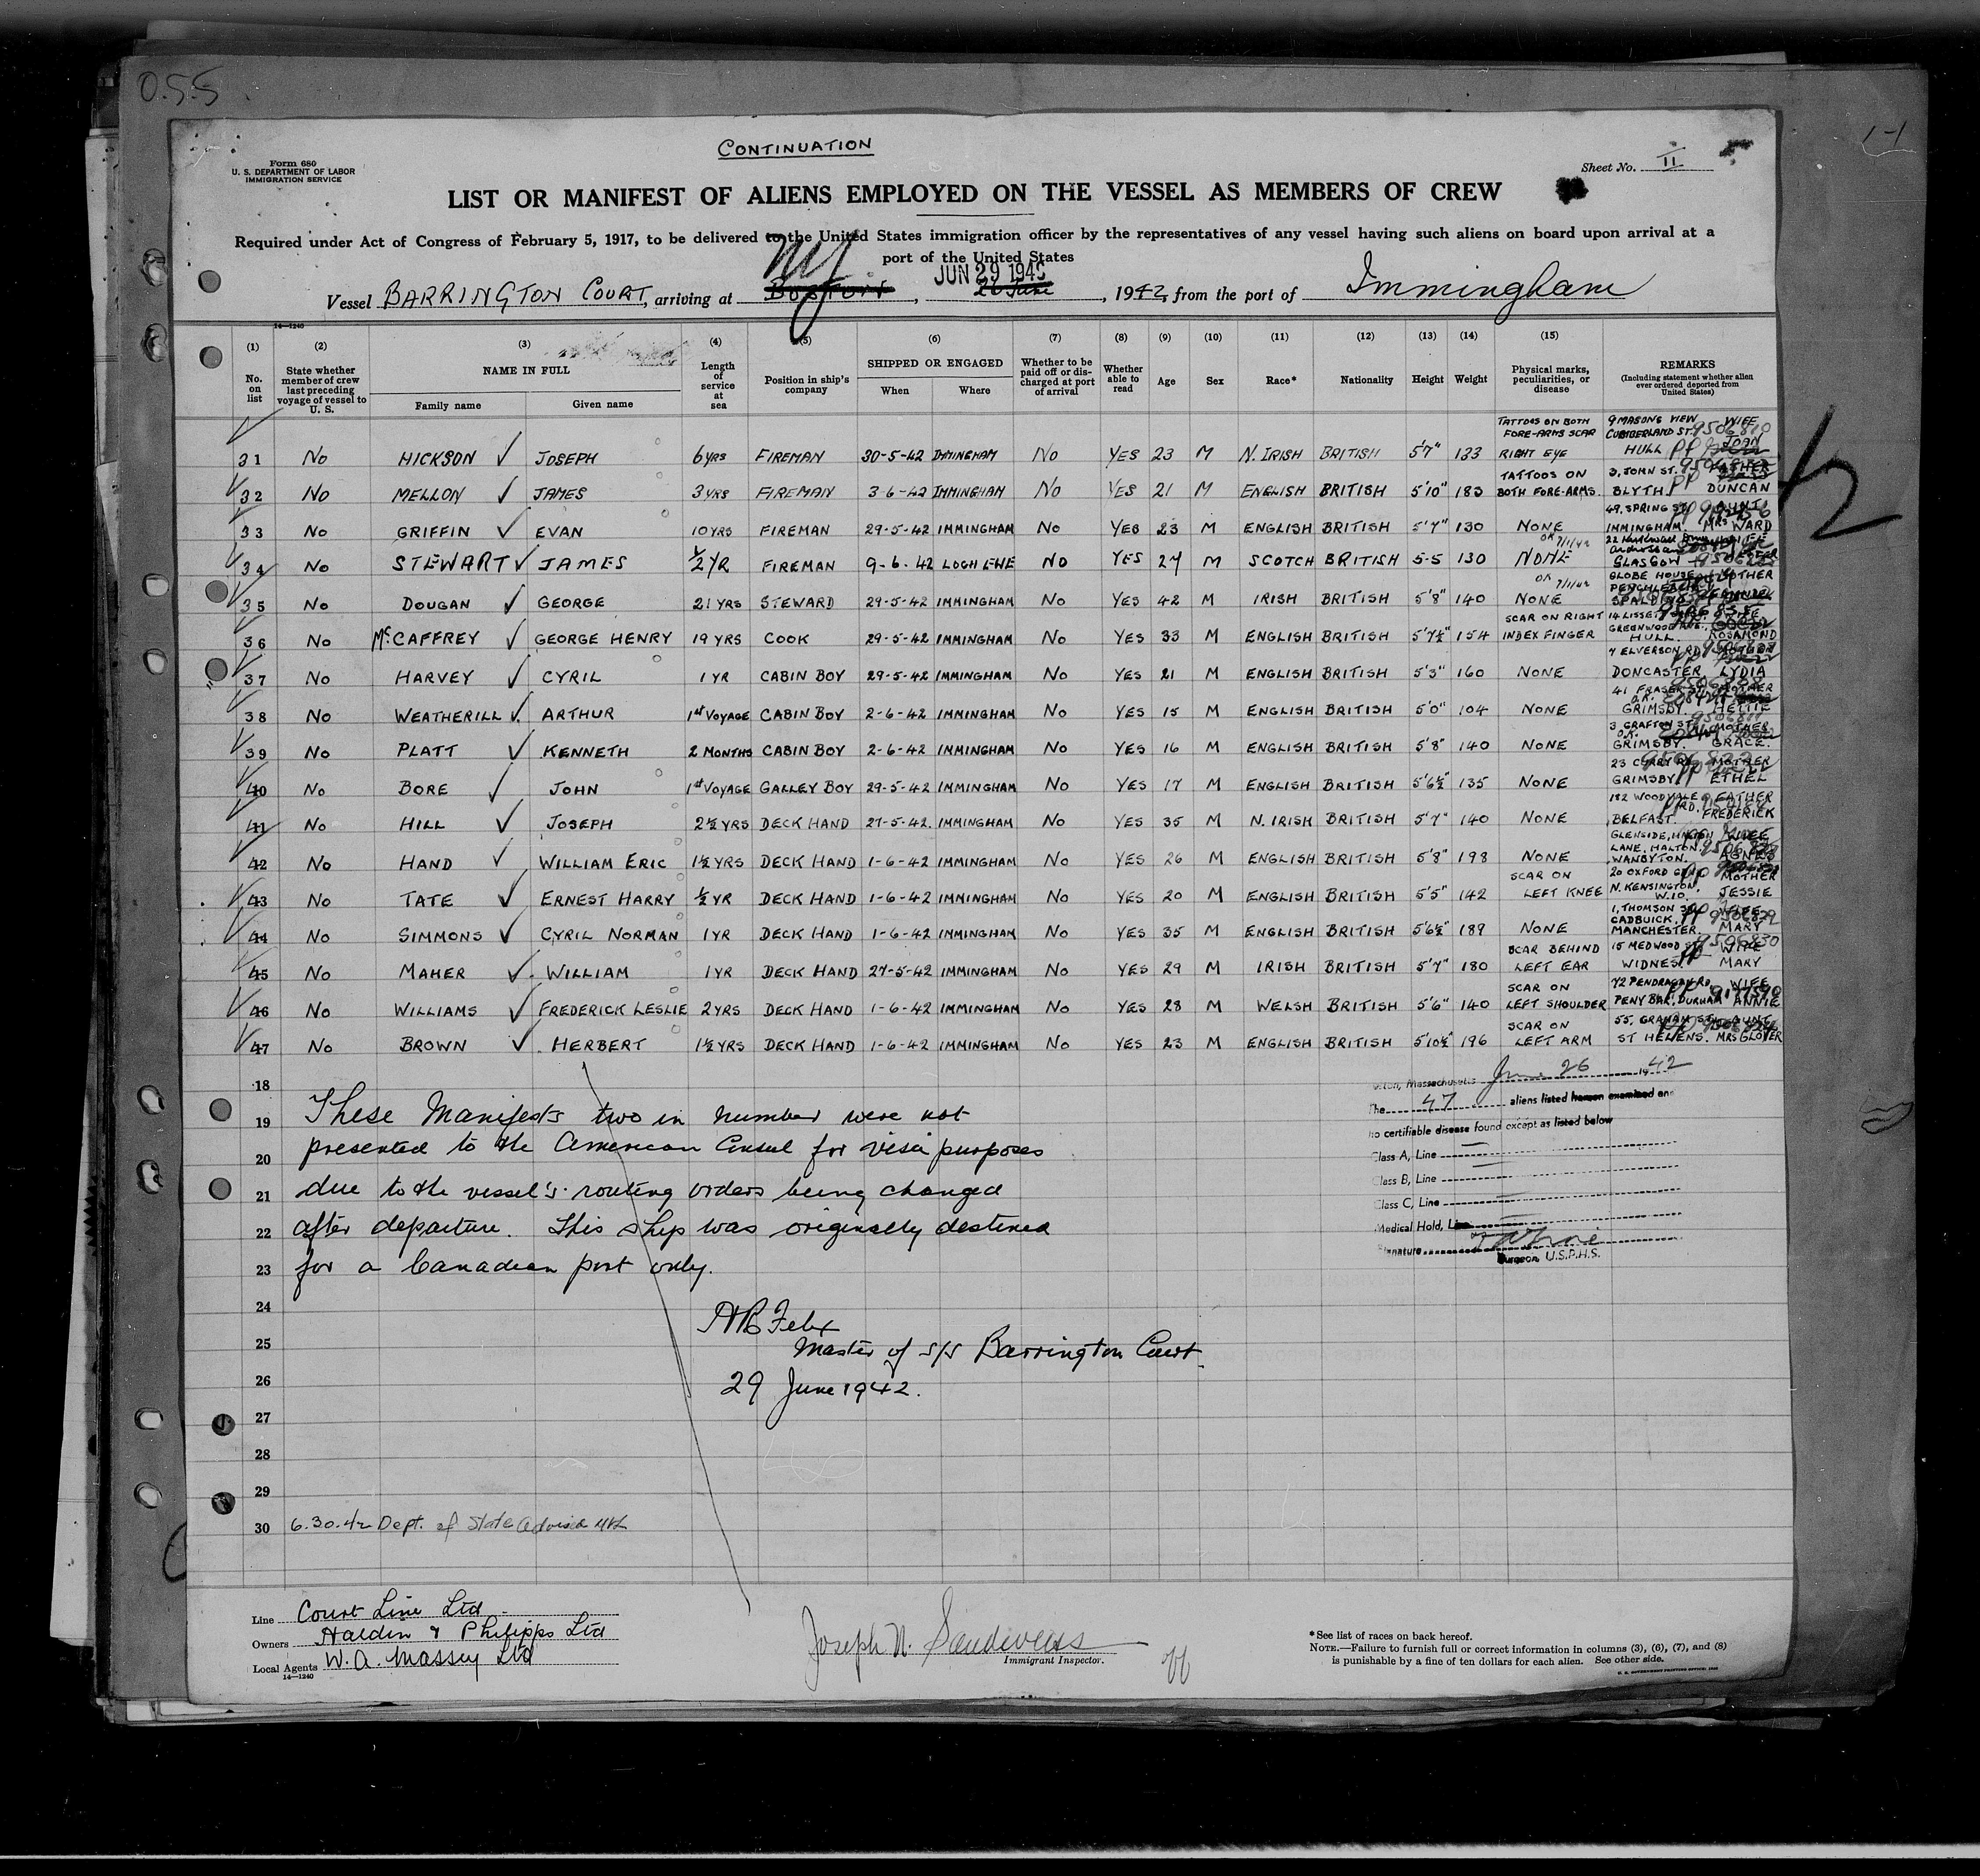 O.S.S
CONTINUATION
Form 680
U. S. DEPARTMENT OF LABOR
IMMIGRATION SERVICE
Sheet No. II
LIST OR MANIFEST OF ALIENS EMPLOYED ON THE VESSEL AS MEMBERS OF CREW
Required under Act of Congress of February 5, 1917, to be delivered to the United States immigration officer by the representatives of any vessel having such aliens on board upon arrival at a
port of the United States
NY JUN 29 194
Vessel BARRINGTON COURT, arriving at Boston, 26 June, 1942, from the port of Immingham
14—1240
(1) (2) (3) (4) (5) (6) (7) (8) (9) (10) (11) (12) (13) (14) (15)
No. on list
State whether member of crew last preceding voyage of vessel to U. S.
NAME IN FULL
Family name Given name
Length of service at sea
Position in ship's company
SHIPPED OR ENGAGED
When Where
Whether to be paid off or discharged at port of arrival
Whether able to read
Age
Sex
Race*
Nationality
Height
Weight
Physical marks, peculiarities, or disease
REMARKS
(Including statement whether alien ever ordered deported from United States)
31 No HICKSON JOSEPH 6 YRS FIREMAN 30-5-42 IMMINGHAM No YES 23 M N. IRISH BRITISH 5'7" 133 TATTOOS ON BOTH FORE-ARMS SCAR RIGHT EYE 9 MASONS VIEW CUMBERLAND ST. HULL WIFE JOAN
32 No MELLON JAMES 3 YRS FIREMAN 3-6-42 IMMINGHAM No YES 21 M ENGLISH BRITISH 5'10" 183 TATTOOS ON BOTH FORE-ARMS. 3, JOHN ST. BLYTH FATHER DUNCAN
33 No GRIFFIN EVAN 10 YRS FIREMAN 29-5-42 IMMINGHAM No YES 23 M ENGLISH BRITISH 5'7" 130 NONE 49, SPRING ST. IMMINGHAM. AUNT MRS WARD
34 No STEWART JAMES ½ YR FIREMAN 9-6-42 LOCH EWE No YES 27 M SCOTCH BRITISH 5-5 130 NONE OK 7/1/42 GLASGOW
35 No DOUGAN GEORGE 21 YRS STEWARD 29-5-42 IMMINGHAM No YES 42 M IRISH BRITISH 5'8" 140 NONE OK 7/1/42 GLOBE HOUSE MOTHER
36 No McCAFFREY GEORGE HENRY 19 YRS COOK 29-5-42 IMMINGHAM No YES 33 M ENGLISH BRITISH 5'7½" 154 SCAR ON RIGHT INDEX FINGER HULL. ROSAMOND
37 No HARVEY CYRIL 1 YR CABIN BOY 29-5-42 IMMINGHAM No YES 21 M ENGLISH BRITISH 5'3" 160 NONE 7 ELVERSON RD DONCASTER LYDIA
38 No WEATHERILL ARTHUR 1st VOYAGE CABIN BOY 2-6-42 IMMINGHAM No YES 15 M ENGLISH BRITISH 5'0" 104 NONE 41 FRASER ST. GRIMSBY. MOTHER HETTIE
39 No PLATT KENNETH 2 MONTHS CABIN BOY 2-6-42 IMMINGHAM No YES 16 M ENGLISH BRITISH 5'8" 140 NONE 3 GRAFTON ST. GRIMSBY. MOTHER GRACE.
40 No BORE JOHN 1st VOYAGE GALLEY BOY 29-5-42 IMMINGHAM No YES 17 M ENGLISH BRITISH 5'6½" 135 NONE GRIMSBY MOTHER ETHEL
41 No HILL JOSEPH 2½ YRS DECK HAND 27-5-42. IMMINGHAM No YES 35 M N. IRISH BRITISH 5'7" 140 NONE 182 WOODVALE RD. BELFAST. FATHER FREDERICK
42 No HAND WILLIAM ERIC 1½ YRS DECK HAND 1-6-42 IMMINGHAM No YES 26 M ENGLISH BRITISH 5'8" 198 NONE GLENSIDE, LANE, HALTON, WIFE AGNES
43 No TATE ERNEST HARRY ½ YR DECK HAND 1-6-42 IMMINGHAM No YES 20 M ENGLISH BRITISH 5'5" 142 SCAR ON LEFT KNEE 20 OXFORD N. KENSINGTON, W.10. MOTHER JESSIE
44 No SIMMONS CYRIL NORMAN 1 YR DECK HAND 1-6-42 IMMINGHAM No YES 35 M ENGLISH BRITISH 5'6½" 189 NONE 1, THOMSON CADBUICK, MANCHESTER. WIFE MARY
45 No MAHER WILLIAM 1 YR DECK HAND 27-5-42 IMMINGHAM No YES 29 M IRISH BRITISH 5'7" 180 SCAR BEHIND LEFT EAR 15 MEDWOOD ST WIDNES. WIFE MARY
46 No WILLIAMS FREDERICK LESLIE 2 YRS DECK HAND 1-6-42 IMMINGHAM No YES 28 M WELSH BRITISH 5'6" 140 SCAR ON LEFT SHOULDER 72 PENDRAGON RD, DURHAM WIFE ANNIE 9177590
47 No BROWN HERBERT 1½ YRS DECK HAND 1-6-42 IMMINGHAM No YES 23 M ENGLISH BRITISH 5'10½" 196 SCAR ON LEFT ARM 55, GRAHAM ST. ST HELENS. AUNT MRS GLOVER
18
19 These Manifests two in number were not
20 presented to the American Consul for visa purposes
21 due to the vessel's routing orders being changed
22 after departure. This ship was originally destined
23 for a Canadian port only.
24
25
26
27
28
29
Massachusetts June 26 1942
The 47 aliens listed hereon examined and
no certifiable disease found except as listed below
Class A, Line
Class B, Line
Class C, Line
Medical Hold, Line
Signature
Surgeon U.S.P.H.S.
H B Felix
Master of s/s Barrington Court.
29 June 1942.
30 6.30.42 Dept. of State advised
Line Court Line Ltd
Owners Haldin & Philipps Ltd
Local Agents W. A. Massey Ltd
14—1240
Joseph N.
Immigrant Inspector.
*See list of races on back hereof.
NOTE.—Failure to furnish full or correct information in columns (3), (6), (7), and (8)
is punishable by a fine of ten dollars for each alien. See other side.